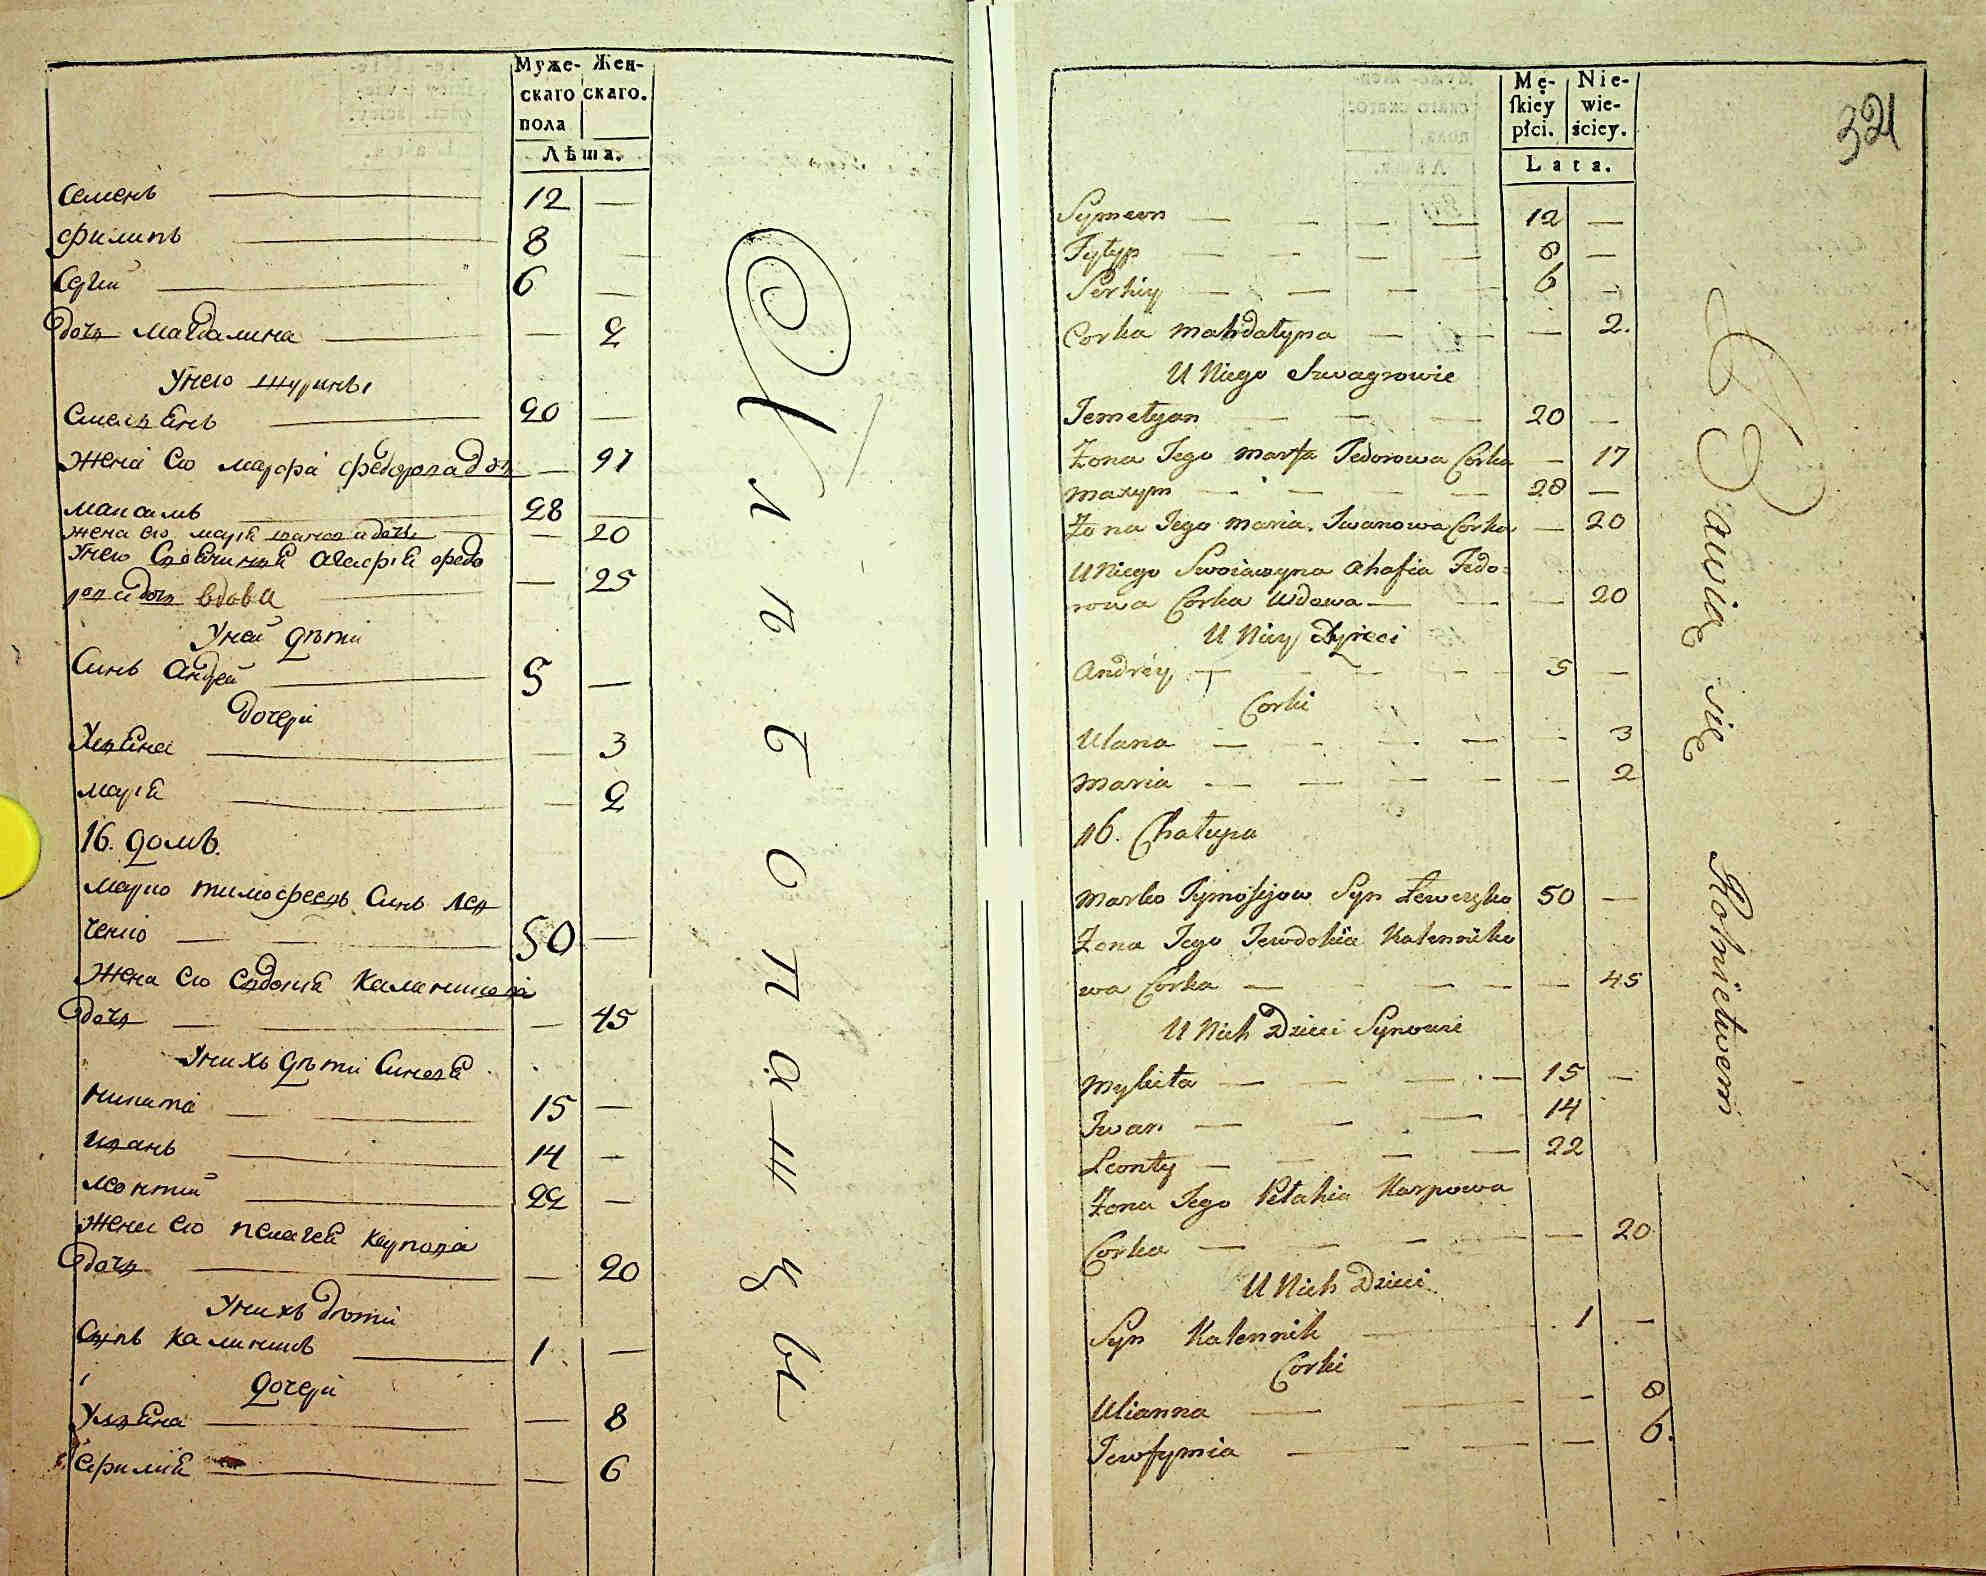 Муже- Жен-
скаго скаго.
пола
Лѣта.
Семенъ 12 —
Филипъ 8 —
Сергий 6 —
дочь магдалина — 2
Унего шурины
Емелянъ 20 —
жена его марфа федорова доч — 17
максимъ 28 —
жена его марія иванова дочь — 20
Унего Своячиния агафія федо
рова дочь вдова — 25
Уней дѣти
Синъ андрей 5 —
дочери
Ульяна — 3
марія — 2
16. домъ.
марко тимофеевъ Синъ лев
ченко 50 —
Жена его Евдокія каленикова
дочь — 45
Унихъ дѣти Синовя
никита 15 —
иванъ 14 —
леонтий 22 —
жена его пелагея карпова
дочь — 20
Унихъ дѣти
Синъ калиникъ 1 —
дочери
Ульяна — 8
Ефимія — 6
Хлѣбопашцы
Mę- Nie-
skiey wie-
płci. ściey.
Lata.
321
Symeon 12 —
Fyłyp 8 —
Serhiy 6 —
Corka Mahdałyna — 2.
U Niego Szwagrowie
Jemełyan 20 —
Żona Jego Marfa Fedorowa Corka — 17
Maxym 28 —
Żona Jego Maria Iwanowa Corka — 20
U Niego Swoiaczyna Ahafia Fedo-
rowa Corka Wdowa — 20
U Niey Dzieci
Andrey 5 —
Corki
Ulana — 3
Maria — 2
16. Chałupa
Marko Tymofijow Syn Lewczyko 50 —
Żona Jego Jewdokia Kalenniko
wa Corka — 45
U Nich Dzieci Synowie
Mykita 15 —
Iwan 14
Leonty 22
Żona Jego Pełahia Karpowa
Corka — 20
U Nich Dzieci
Syn Kalennik 1 —
Corki
Ulianna — 8
Jewfymia — 6.
Bawią się Rolnictwem